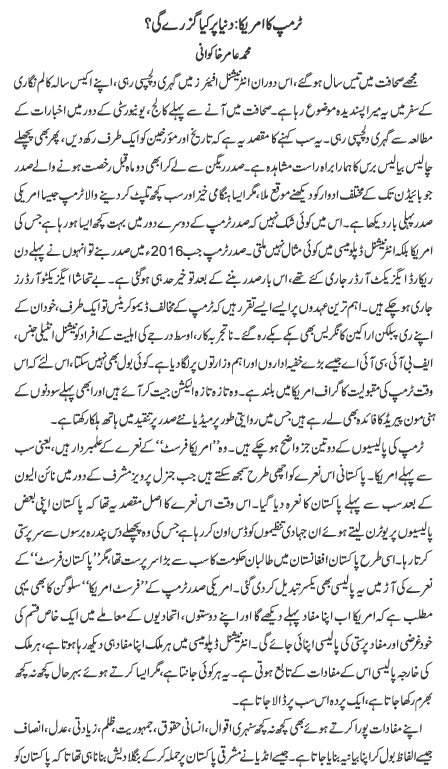 ٹرمپ کا امریکا: دنیا پر کیا گزرے گی؟
محمد عامر خاکوانی
مجھے صحافت میں تیس سال ہوگئے، اس دوران انٹرنیشنل افیئرز میں گہری دلچسپی رہی، اپنے اکیس سالہ کالم نگاری
کے سفر میں یہ میرا پسندیدہ موضوع رہا ہے۔ صحافت میں آنے سے پہلے کالج، یونیورسٹی کے دور میں اخبارات کے
مطالعہ سے گہری دلچسپی رہی۔ یہ سب کہنے کا مقصد یہ ہے کہ تاریخ اور مؤرخین کو ایک طرف رکھ دیں، پھر بھی پچھلے
چالیس بیالیس برس کا ہمارا براہ راست مشاہدہ ہے۔ صدر ریگن سے لے کر ابھی دو ماہ قبل رخصت ہونے والے صدر
جو بائیڈن تک کے مختلف ادوار کو دیکھنے کا موقع ملا، مگر ایسا ہنگامی خیز اور سب کچھ تلپٹ کر دینے والا ٹرمپ جیسا امریکی
صدر پہلی بار دیکھا ہے۔ اس میں کوئی شک نہیں کہ صدر ٹرمپ کے دوسرے دور میں بہت کچھ ایسا ہو رہا ہے جس کی
امریکا بلکہ انٹرنیشنل ڈپلومیسی میں کوئی مثال نہیں ملتی۔ صدر ٹرمپ جب 2016ء میں صدر بنے تو انہوں نے پہلے دن
ریکارڈ ایگزیکٹ آرڈر جاری کئے تھے، اس بار صدر بننے کے بعد تو خیر حد ہی ہوگئی ہے۔ بے تحاشا ایگزیکٹو آرڈرز
جاری ہو چکے ہیں۔ اہم ترین عہدوں پر ایسے ایسے تقرر ہیں کہ ٹرمپ کے مخالف ڈیموکریٹس تو ایک طرف، خود ان کے
اپنے ری پبلکن اراکین کانگریس بھی ہکے بکے رہ گئے۔ ناتجربہ کار، اوسط درجے کی اہلیت کے افراد کو نیشنل انٹیلی جنس،
ایف بی آئی، سی آئی اے جیسے بڑے خفیہ اداروں اور اہم وزارتوں پر لگا دیا ہے۔ کوئی بول بھی نہیں سکتا، اس لئے کہ اس
وقت ٹرمپ کی مقبولیت کا گراف امریکا میں بلند ہے۔ وہ تازہ تازہ الیکشن جیت کر آئے ہیں اور ابھی پہلے سو دنوں کے
ہنی مون پیریڈ کا فائدہ بھی لے رہے ہیں جس میں روایتی طور پر میڈیا نئے صدر پر تنقید میں ہاتھ ہلکا رکھتا ہے۔
ٹرمپ کی پالیسیوں کے دو تین جز واضح ہو چکے ہیں۔ وہ “امریکا فرسٹ” کے نعرے کے علمبردار ہیں، یعنی سب
سے پہلے امریکا۔ پاکستانی اس نعرے کو اچھی طرح سمجھ سکتے ہیں جب جنرل پرویز مشرف کے دور میں نائن الیون
کے بعد سب سے پہلے پاکستان کا نعرہ دیا گیا۔ اس وقت اس نعرے کا اصل مقصد یہ تھا کہ پاکستان اپنی بعض
پالیسیوں پر یوٹرن لیتے ہوئے ان جہادی تنظیموں کو ڈس اون کر رہا ہے جس کی وہ پچھلے دس پندرہ برسوں سے سرپرستی
کرتا رہا۔ اسی طرح پاکستان افغانستان میں طالبان حکومت کا سب سے بڑا سرپرست تھا، مگر “پاکستان فرسٹ” کے
نعرے کی آڑ میں یہ پالیسی بھی یکسر تبدیل کر دی گئی۔ امریکی صدر ٹرمپ کے “فرسٹ امریکا” سلوگن کا بھی یہی
مطلب ہے کہ امریکا اب اپنا مفاد پہلے دیکھے گا اور اپنے دوستوں، اتحادیوں کے معاملے میں ایک خاص قسم کی
خودغرضی اور مفاد پرستی کی پالیسی اپنائی جائے گی۔ انٹرنیشنل ڈپلومیسی میں ہر ملک اپنا مفاد ہی دیکھ رہا ہوتا ہے، ہر ملک
کی خارجہ پالیسی اس کے مفادات کے تابع ہوتی ہے۔ یہ ہر کوئی جانتا ہے، مگر ایسا کرتے ہوئے بہرحال کچھ نہ کچھ
بھرم رکھا جاتا ہے، ایک پردہ اس سب پر ڈالا جاتا ہے۔
اپنے مفادات پورا کرتے ہوئے بھی کچھ نہ کچھ سنہری اقوال، انسانی حقوق، جمہوریت، ظلم، زیادتی، عدل، انصاف
جیسے الفاظ بول کر اپنا بیانیہ بنایا جاتا ہے۔ جیسے انڈیا نے مشرقی پاکستان پر حملہ کر کے بنگلا دیش بنانا ہی تھا تا کہ پاکستان کو